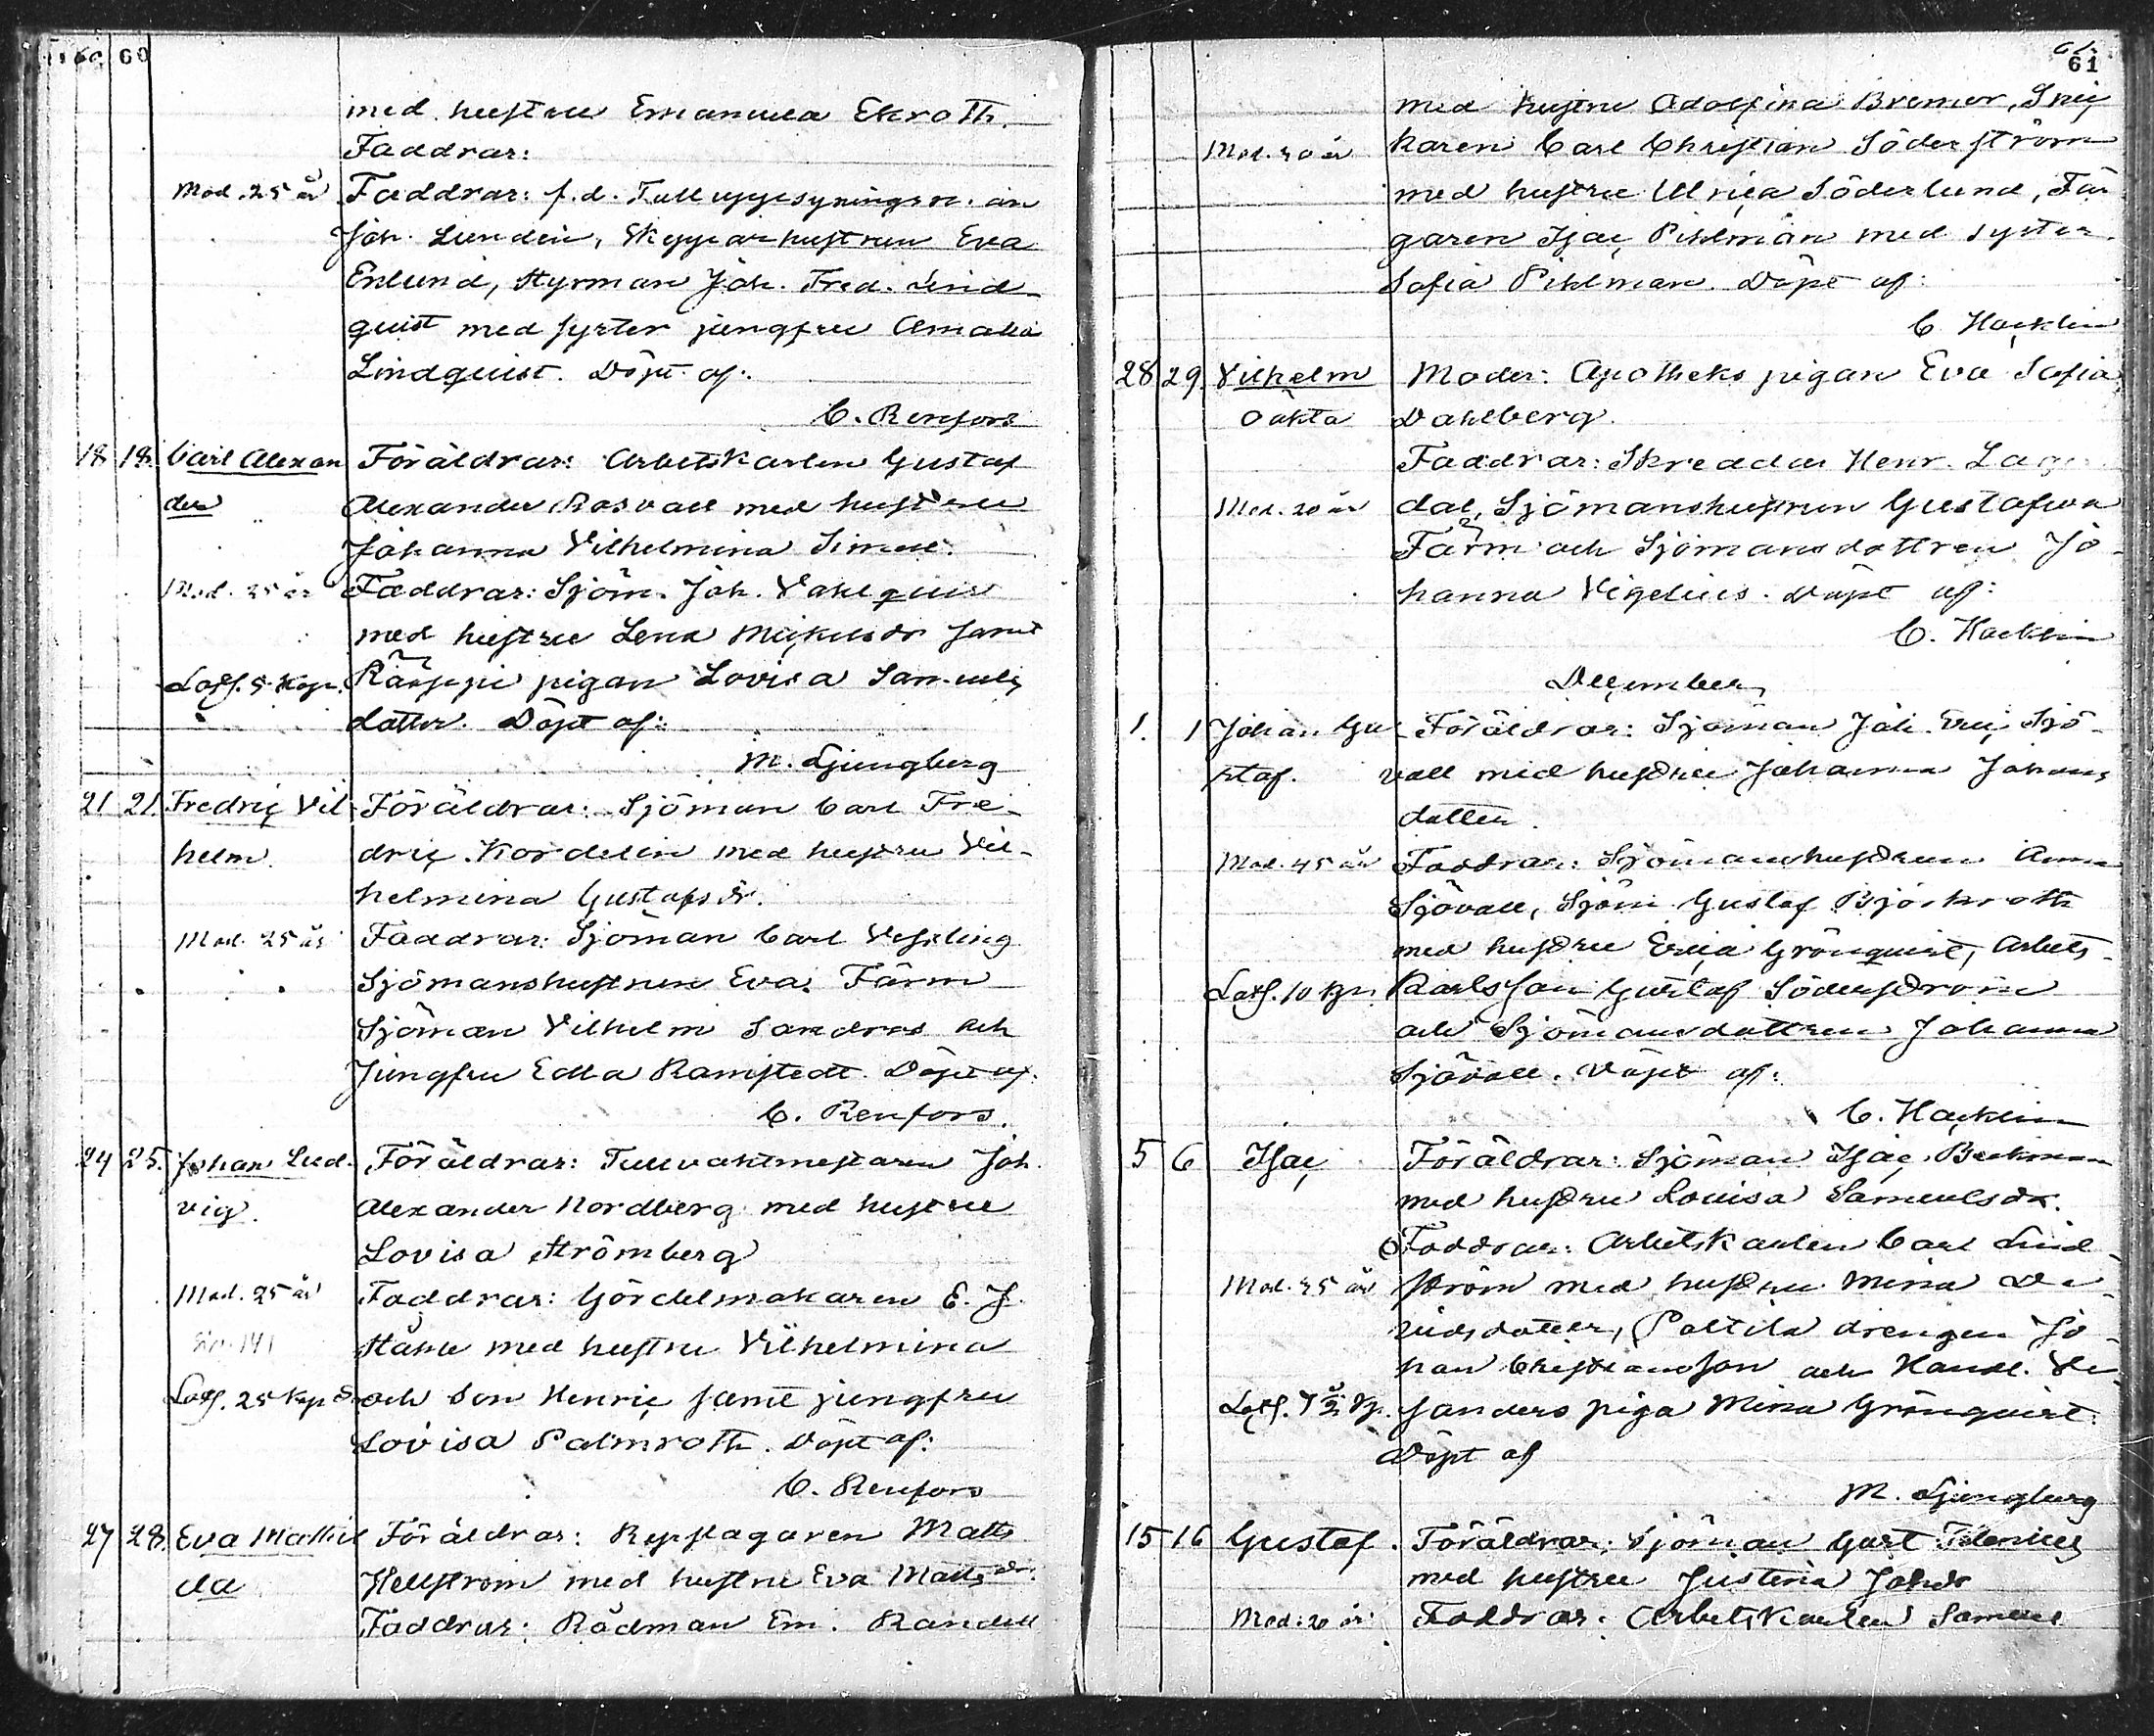 60 60
med hustru Emanuela Ekroth.
Faddrar:
Mod. 25 år Faddrar: f.d. Tulluppsyningsm. an
Joh. Lundén, Skepparhustrun Eva
Enlund, Styrman Joh. Fred. Lind-
quist med syster jungfru Amalia
Lindquist. Döpt af:
C. Renfors
18 18. Carl Alexan Föräldrar: Arbetskarlen Gustaf
der Alexander Rosvall med hustru
Johanna Vilhelmina Simell.
Mod. 25 år Faddrar: Sjöm. Joh. Vahlquist
med hustru Lena Mickelsdr samt
Lösf. 5 Kop. Räippi pigan Lovisa Samuels
dotter. Döpt af:
M. Ljungberg
21 21. Fredric Vil Föräldrar: Sjöman Carl Fre-
helm. dric Kordelin med hustru Vil-
helmina Gustafsdr.
Mod. 25 år Faddrar: Sjöman Carl Vessling
Sjömanshustrun Eva Färm
Sjöman Vilhelm Sandros och
Jungfru Edla Ramstedt. Döpt af:
C. Renfors.
24 25. Johan Lud- Föräldrar: Tullvaktmestaren Joh.
vig. Alexander Nordberg med hustru
Lovisa Strömberg
Mod. 25 år Faddrar: Gördelmakaren E. J.
141 Ståhle med hustru Vilhelmina
Lösf. 25 Kop S. och Son Henric samt jungfru
Lovisa Palmroth. Döpt af:
C. Renfors
27 28. Eva Mathil Föräldrar: Repslagaren Matts
da Hellström med hustru Eva Mattsdr.
Faddrar: Rådman Em. Randell
61
med hustru Adolfina Bremer, Snic
Mod. 40 år karen Carl Christian Söderström
med hustru Ulrica Söderlund, Fär
garen Isac Pihlman med syster
Sofia Pihlman. Döpt af:
C. Hacklin
28 29. Vilhelm Moder: Apotheks pigan Eva Sofia
Oäkta Dahlberg.
Faddrar: Skreddar Henr. Lager
Mod. 20 år dal, Sjömanshustrun Gustafwa
Färm och Sjömansdottren Jo-
hanna Vigelius. Döpt af:
C. Hacklin
December
1. 1 Johan Gu Föräldrar: Sjöman Joh. Eric Sjö-
staf. vall med hustru Johanna Johans
dotter.
Mod. 45 år Faddrar: Sjömanshustrun Anna
Sjövall, Sjöm. Gustaf Björkroth
med hustru Erica Grönquist, Arbets-
Lösf. 10 Kp. Karlsson Gustaf Söderström
och Sjömansdottren Johanna
Sjövall. Döpt af:
C. Hacklin
5 6 Isac Föräldrar: Sjöman Isac Beckman
med hustru Lovisa Samuelsdr.
Faddrar: Arbetskarlen Carl Lind-
Mod. 35 år ström med hustru Mina Da-
vidsdotter, Paltila drengen Jo-
han Christiansson och Handl. Se-
Lösf. 7 ½ Kp. landers piga Mina Grönquist.
Döpt af
M. Ljungberg
15 16 Gustaf. Föräldrar: Sjöman Gust.
med hustru Justina Johsdr
Mod. 20 år Faddrar: Arbetskarlen Samuel